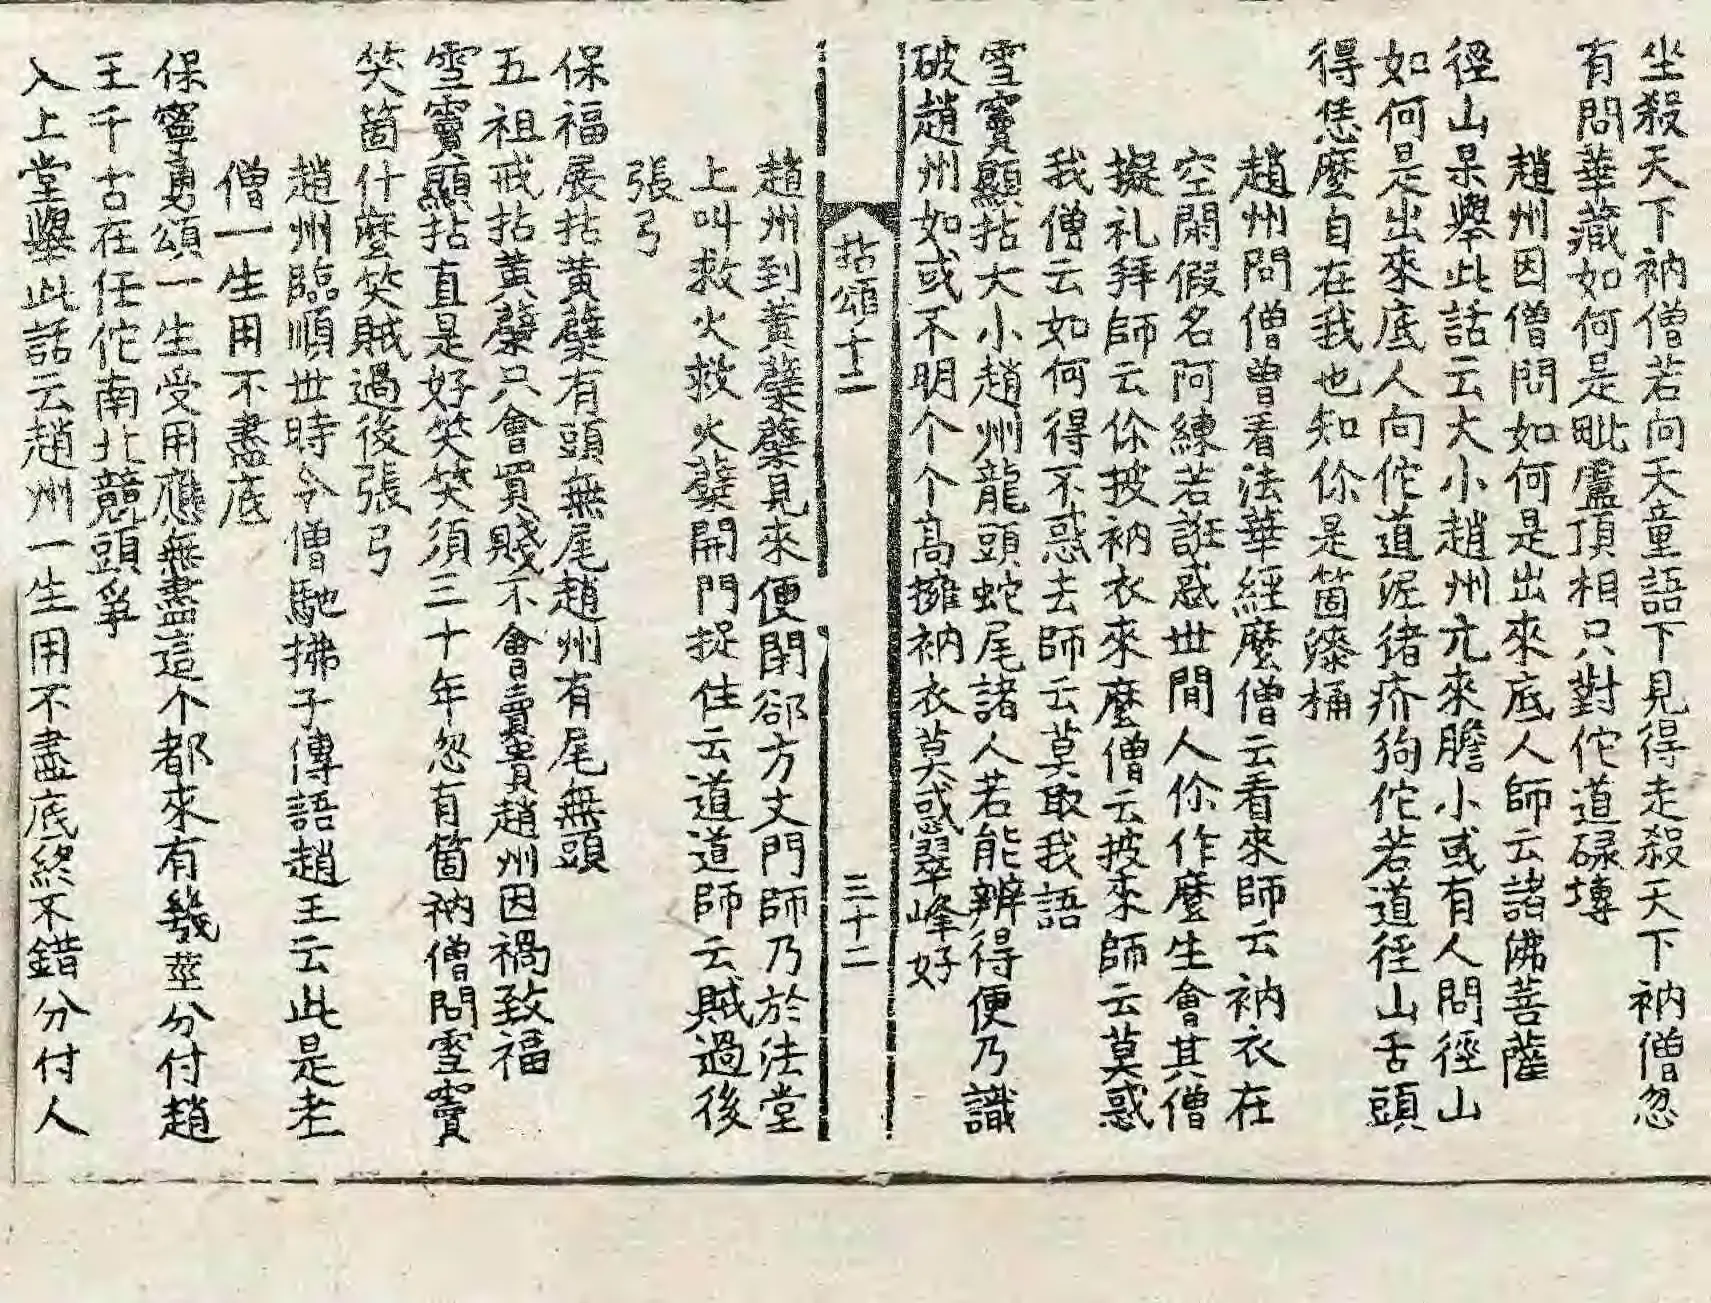 坐殺天下衲僧若向天童語下見得走殺天下衲僧忽
有問華藏如何是毗盧頂相只對佗道碌塼
趙州因僧問如何是出來底人師云諸佛菩薩
徑山杲舉此話云大小趙州元來膽小或有人問徑山
如何是出來底人向佗道泥猪疥狗佗若道徑山舌頭
得恁麼自在我也知你是箇漆桶
趙州問僧曾看法華經麼僧云看來師云衲衣在
空閑假名阿練若誑惑世間人你作麼生會其僧
擬礼拜師云你披衲衣來麼僧云披來師云莫惑
我僧云如何得不惑去師云莫取我語
雪竇顯拈大小趙州龍頭蛇尾諸人若能辨得便乃識
破趙州如或不明个个高擁衲衣莫惑翠峰好
拈頌十二
三十二
趙州到黃蘗蘗見來便閉郤方丈門師乃於法堂
上叫救火救火蘗開門捉住云道道師云賊過後
張弓
保福展拈黃蘗有頭無尾趙州有尾無頭
五祖戒拈黃蘗只會買賤不會賣貴趙州因禍致福
雪竇顯拈直是好笑笑須三十年忽有箇衲僧問雪竇
笑箇什麼笑賊過後張弓
趙州臨順世時令僧馳拂子傳語趙王云此是老
僧一生用不盡底
保寧勇頌一生受用應無盡這个都來有幾莖分付趙
王千古在任佗南北競頭爭
入上堂舉此話云趙州一生用不盡底終不錯分付人